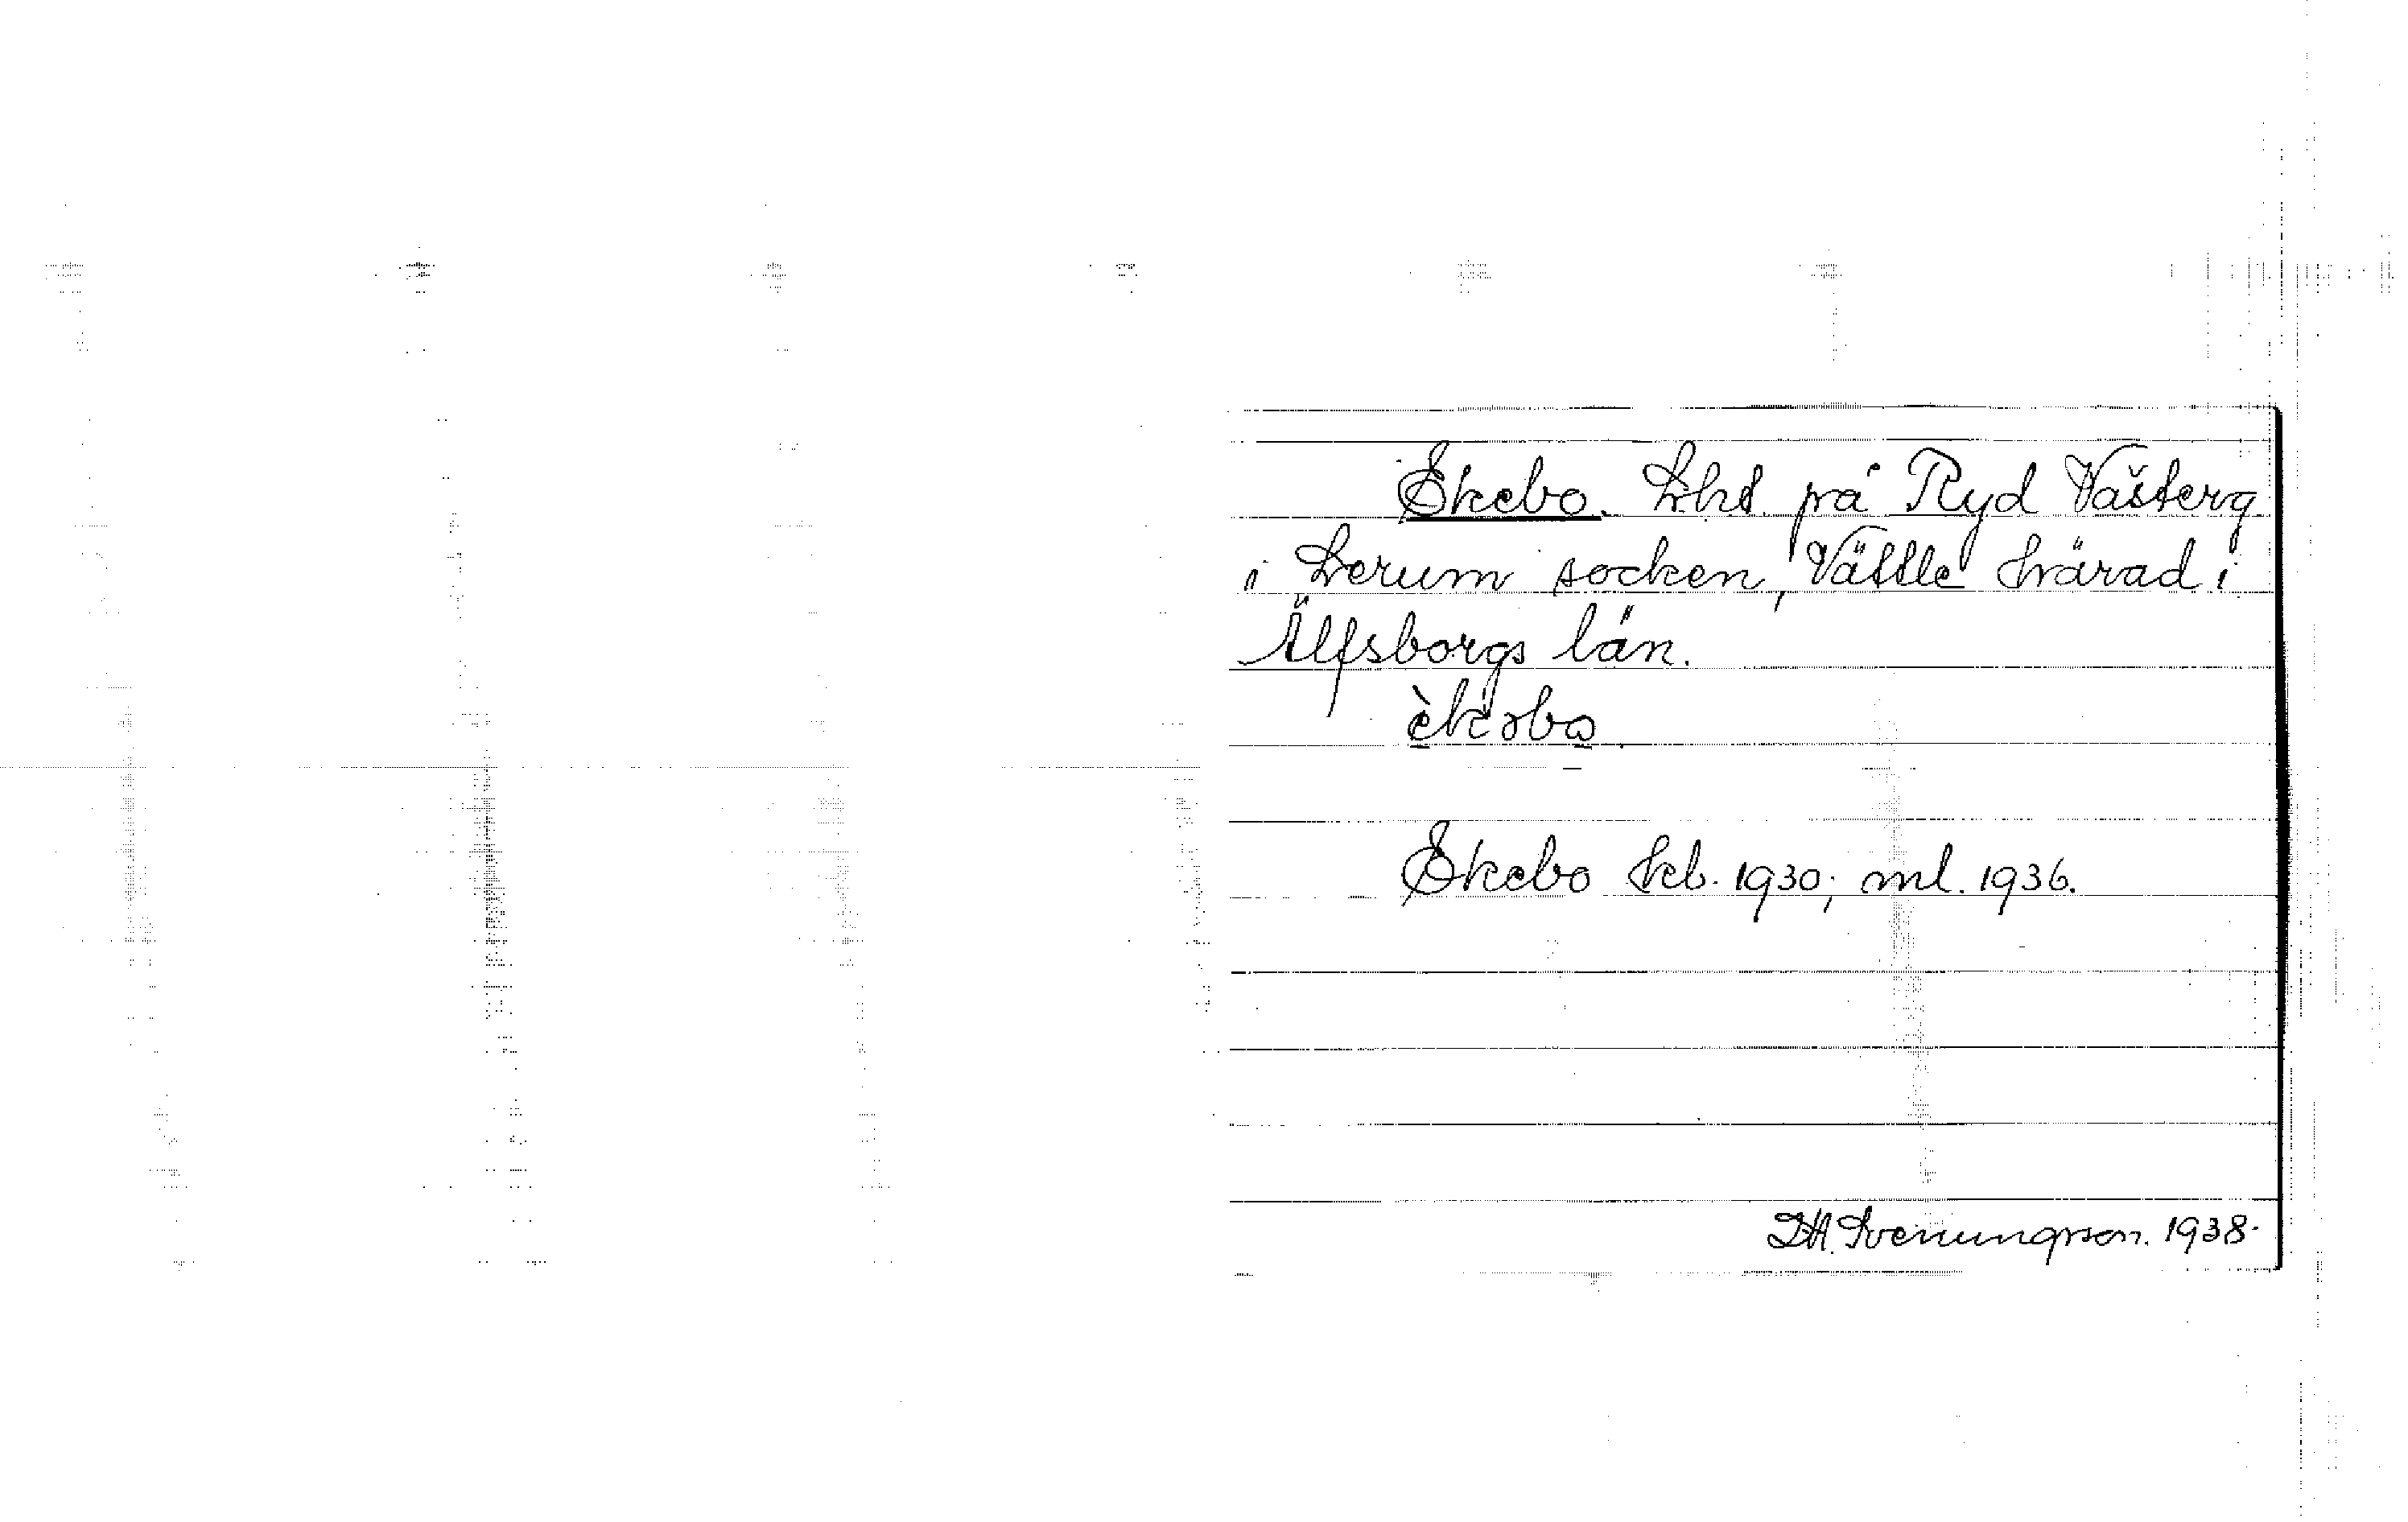 Ekebo. Lht på Ryd Västerg.
i Lerum socken, Vättle härad i
Älfsborgs län.
èkəbo
Ekebo hcb. 1930; ml. 1936.
Svenungsson. 1938.